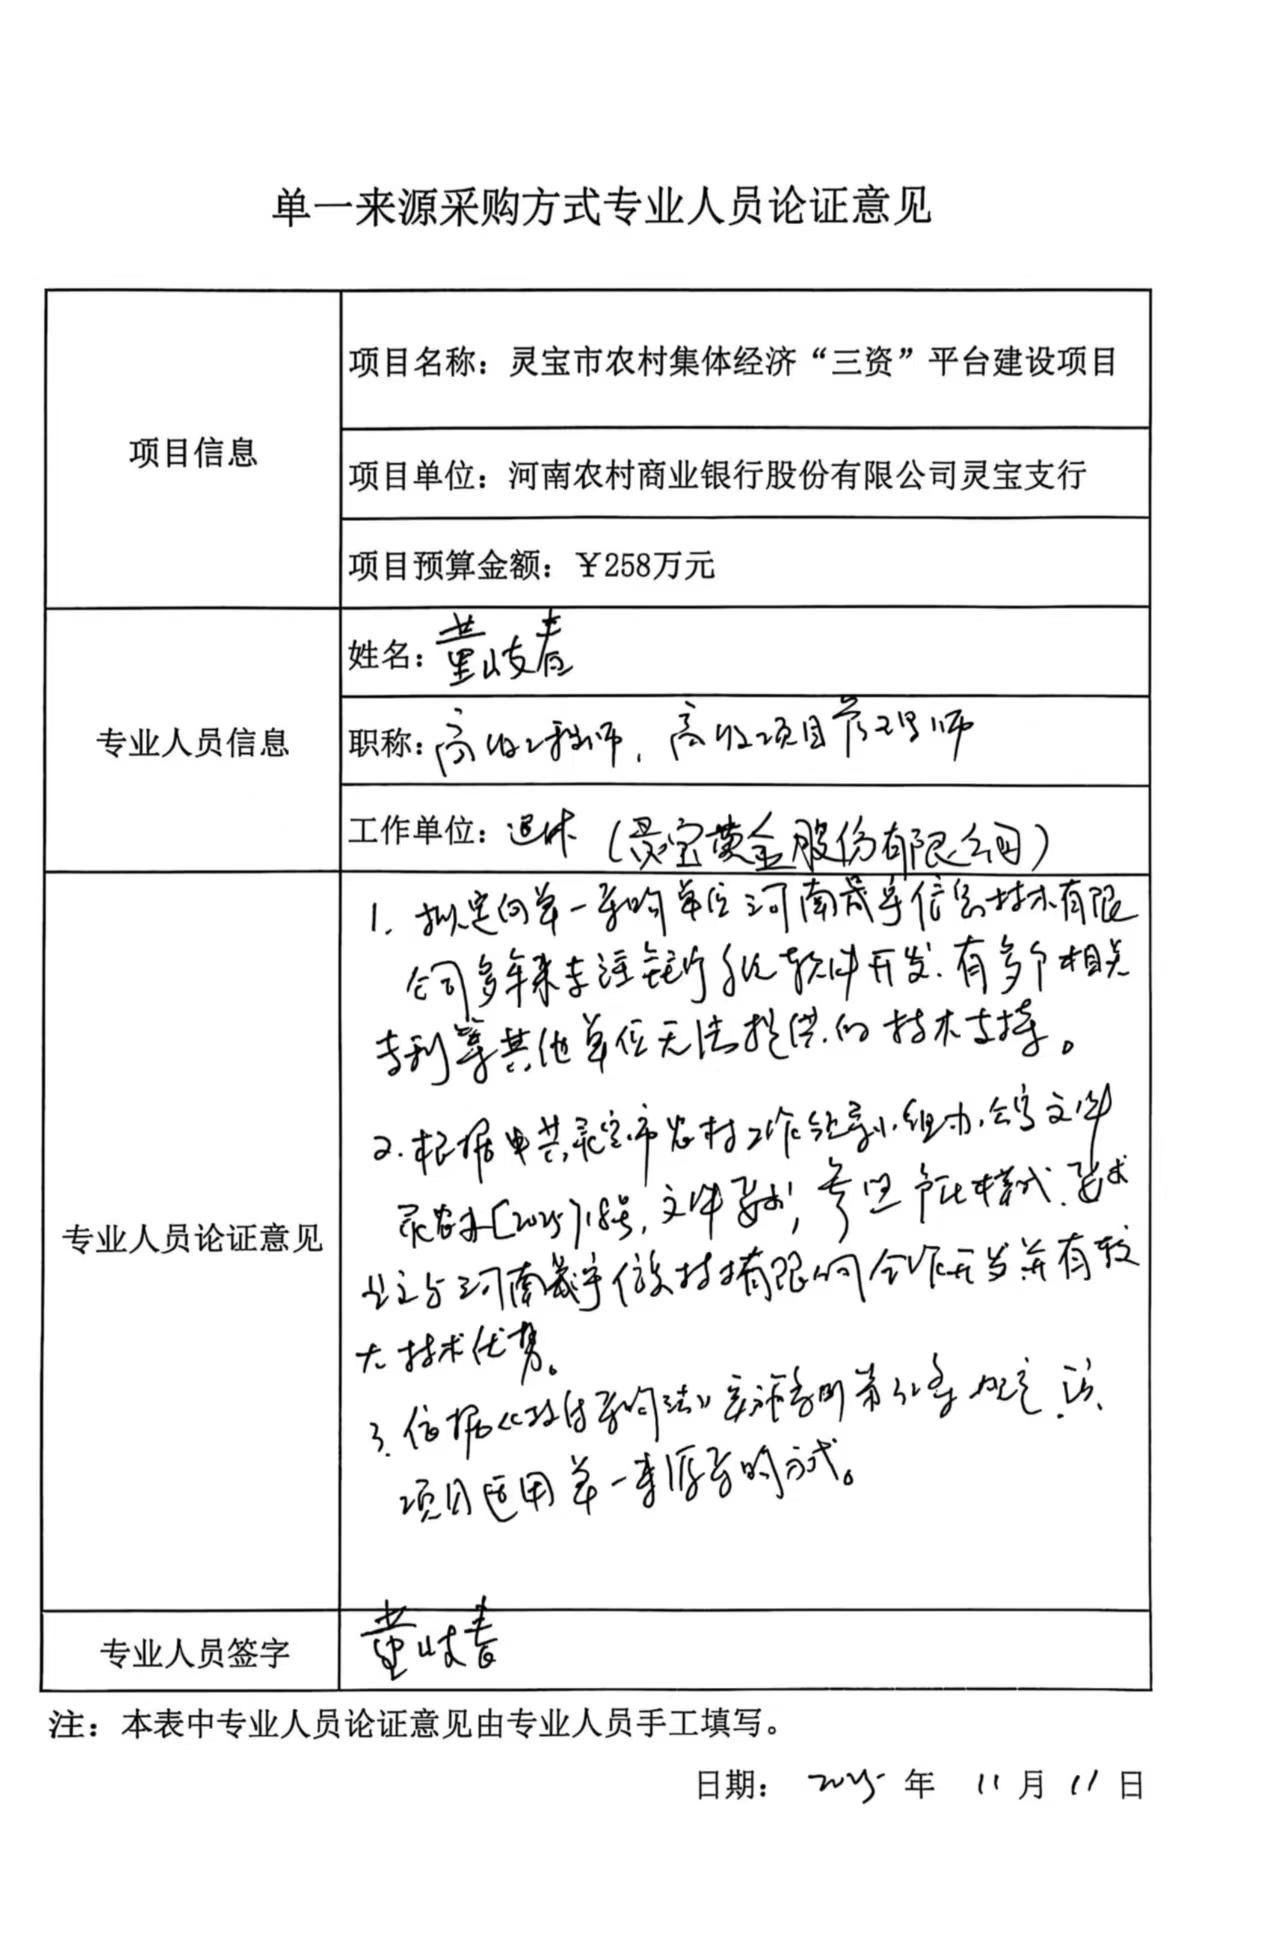 单一来源采购方式专业人员论证意见
项目信息
项目名称：灵宝市农村集体经济“三资”平台建设项目
项目单位：河南农村商业银行股份有限公司灵宝支行
项目预算金额：￥258万元
专业人员信息
姓名：董岐春
职称：高级工程师，高级项目管理师
工作单位：退休（灵宝黄金股份有限公司）
专业人员论证意见
1. 拟定向单一采购单位河南晟宇信息技术有限
公司多年来专注银行系统软件开发.有多个相关
专利等其他单位无法提供的技术支持。
2. 根据中共灵宝市农村工作领导小组办公室文件
灵农办[2025]18号,文件要求，参照 模式.要求
与河南晟宇信息技术有限公司合作开发并有较
大技术优势。
3. 依据《政府采购法》实施条例第 条规定.该
项目适用单一来源采购方式。
专业人员签字
董岐春
注：本表中专业人员论证意见由专业人员手工填写。
日期： 2025 年 11 月 11 日